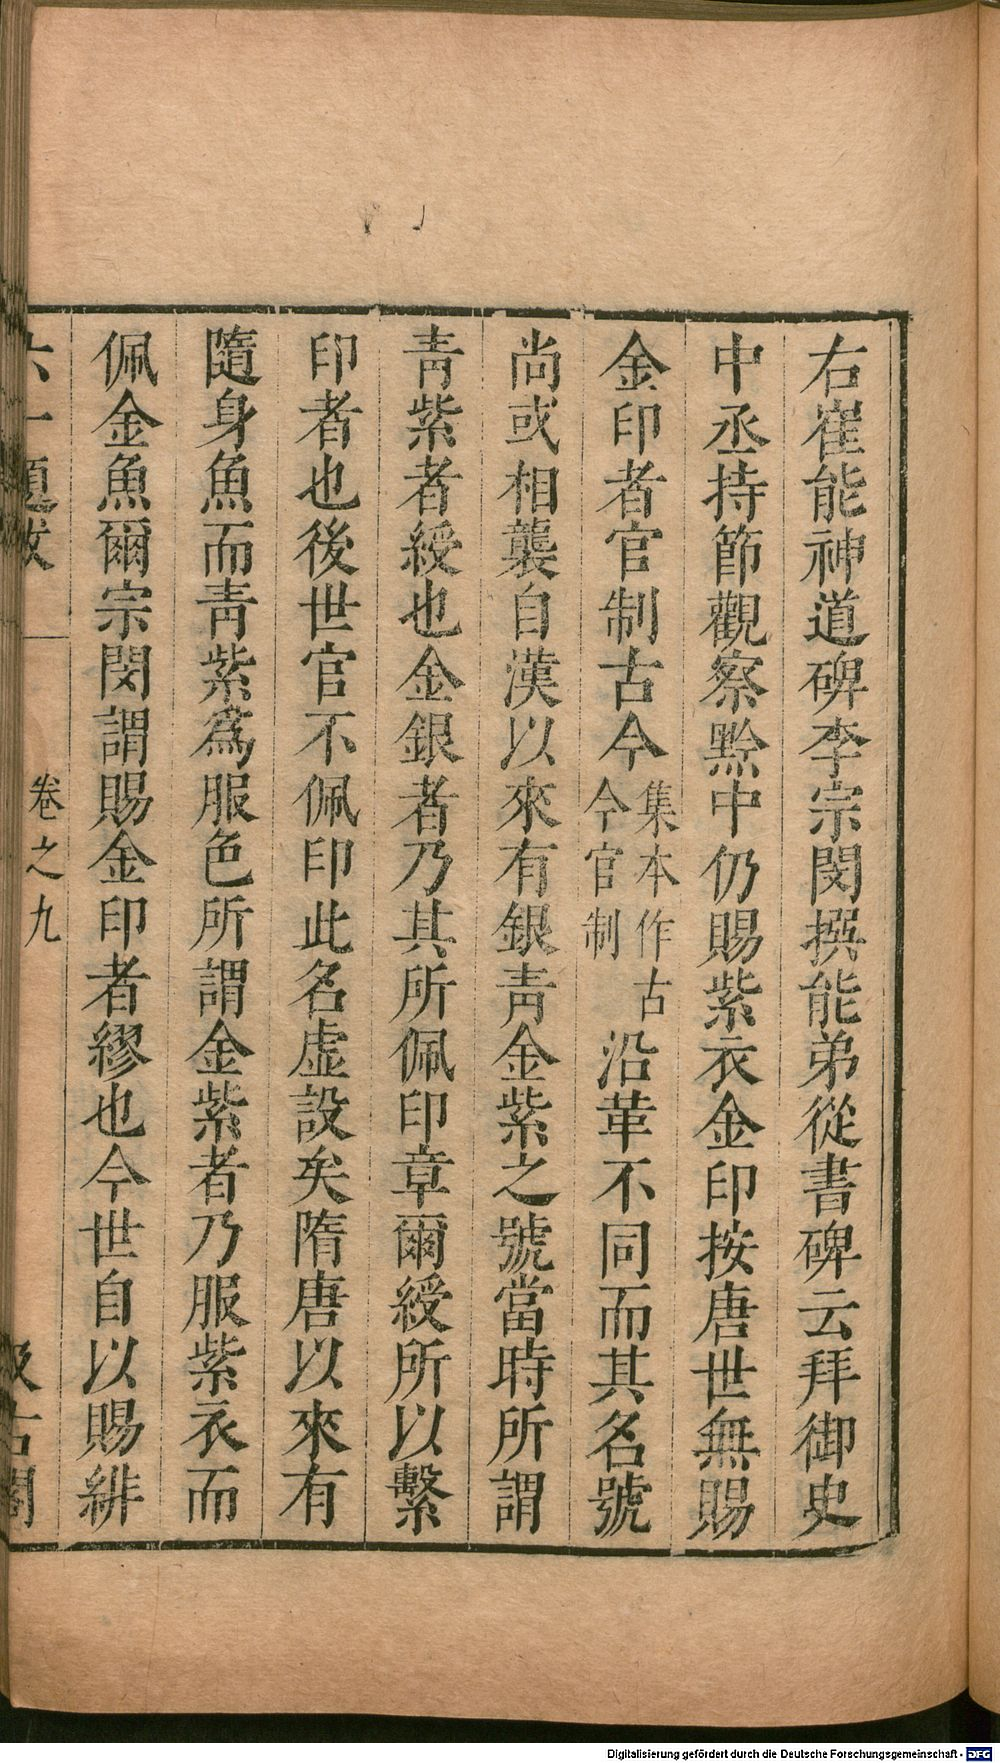 右崔能神道碑李宗閔撰能弟從書碑云拜御史
中丞持節觀察黔中仍賜紫衣金印按唐世無賜
金印者官制古今集本作古今官制沿革不同而其名號
尚或相襲自漢以來有銀青金紫之號當時所謂
青紫者綬也金銀者乃其所佩印章爾綬所以繫
印者也後世官不佩印此名虛設矣隋唐以來有
隨身魚而青紫為服色所謂金紫者乃服紫衣而
佩金魚爾宗閔謂賜金印者繆也今世自以賜緋
六一題跋 卷之九 汲古閣
Digitalisierung gefördert durch die Deutsche Forschungsgemeinschaft - DFG